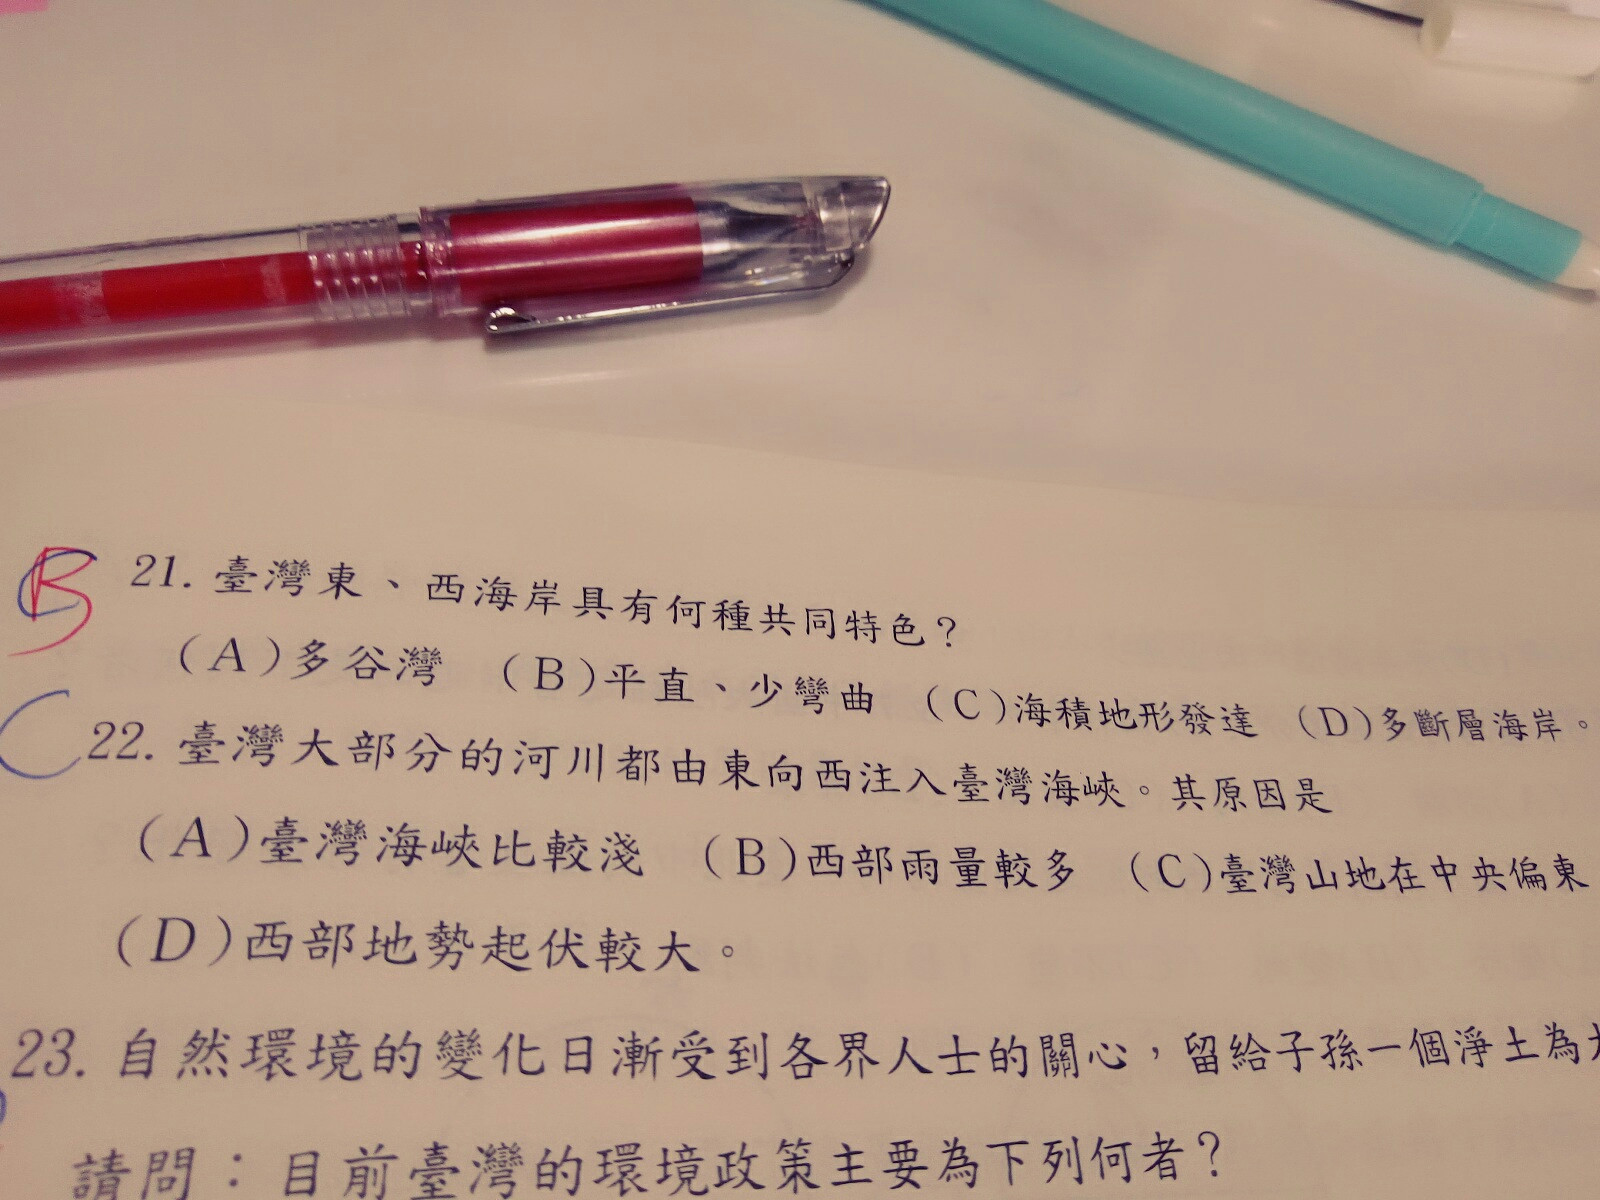 B 21. 臺灣東、西海岸具有何種共同特色？
(A)多谷灣 (B)平直、少彎曲 (C)海積地形發達 (D)多斷層海岸。
C 22. 臺灣大部分的河川都由東向西注入臺灣海峽。其原因是
(A)臺灣海峽比較淺 (B)西部雨量較多 (C)臺灣山地在中央偏東
(D)西部地勢起伏較大。
23. 自然環境的變化日漸受到各界人士的關心，留給子孫一個淨土為
請問：目前臺灣的環境政策主要為下列何者？